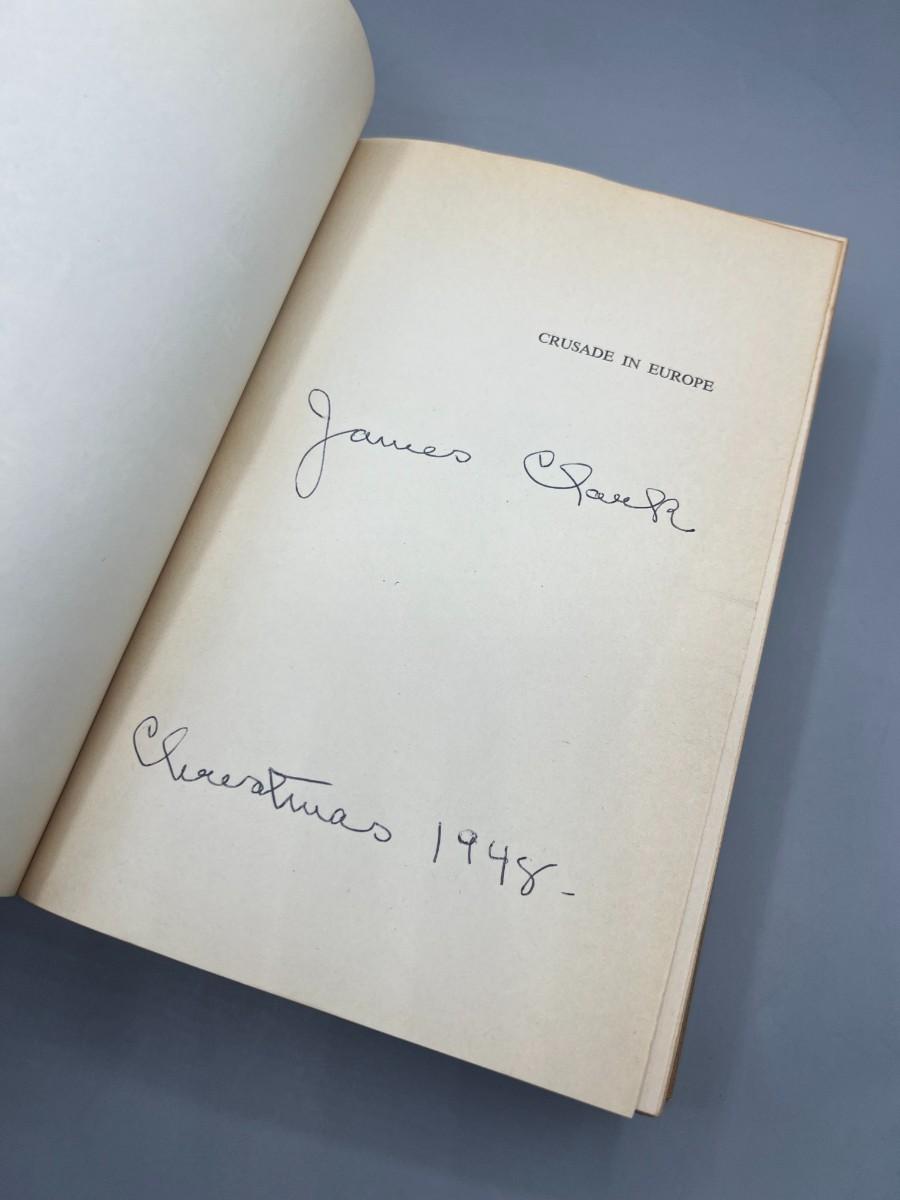 CRUSADE IN EUROPE
James Clark
Christmas 1948-